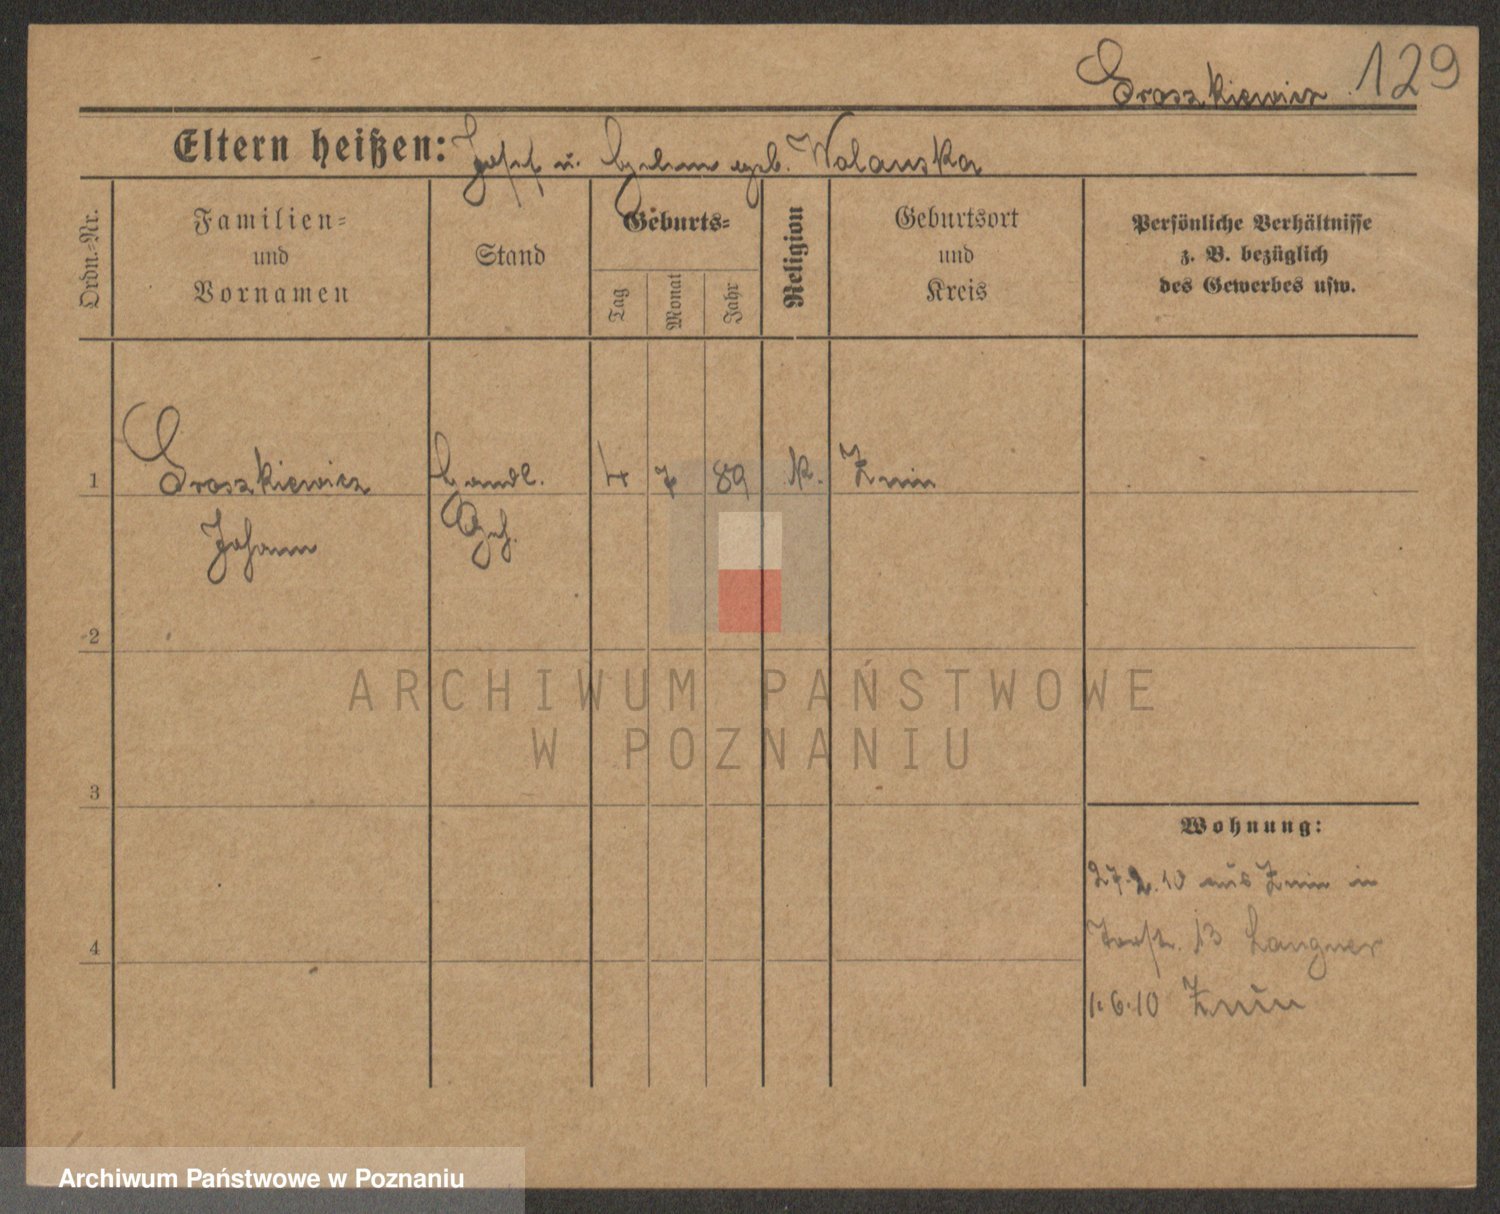 Groszkiewicz 129
Eltern heißen: Josef u. Helene geb. Wolanska
Ordn.-Nr.
Familien-
und
Vornamen
Stand
Geburts-
Tag
Monat
Jahr
Religion
Geburtsort
und
Kreis
Persönliche Verhältnisse
z. B. bezüglich
des Gewerbes usw.
1 Groszkiewicz Handl. 4 7 89 K. Znin
Johann Geh.
2
ARCHIWUM PAŃSTWOWE
W POZNANIU
3
Wohnung:
27.2.10 aus Znin in
13 Langner
4
1.6.10 Znin
Archiwum Państwowe w Poznaniu